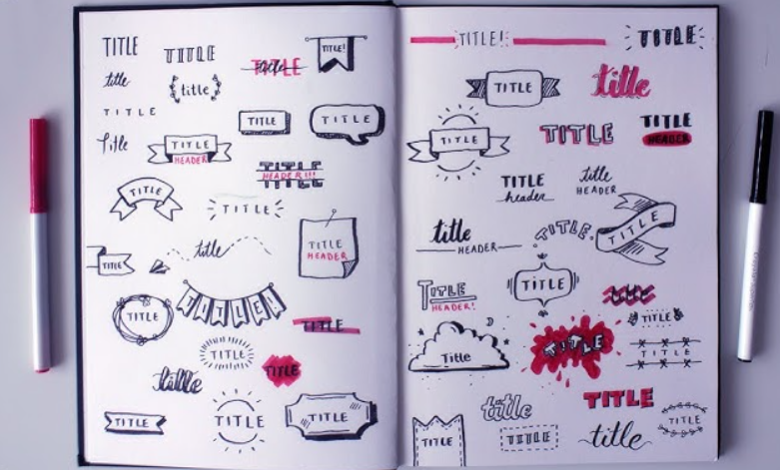 TITLE
TITLE
title
TITLE!
title
title
TITLE
TITLE
TITLE
title
TITLE
HEADER
TITLE
HEADER!!!
TITLE
TITLE
TITLE
HEADER
title
TITLE
TITLE
TITLE!
TITLE
TITLE
TITLE
title
TITLE
TITLE
TITLE
TITLE!
TITLE
TITLE
title
TITLE
TITLE
TITLE
HEADER
TITLE
header
title
HEADER
title
HEADER
TITLE
TITLE
TITLE
TITLE
HEADER!
TITLE
Title
TITLE
TITLE
title
TITLE
TITLE
TITLE
TITLE
title